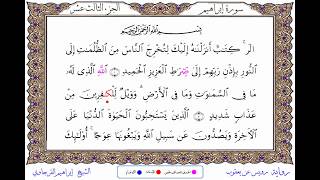 سورة إبراهيم الجزء الثالث عشر
بسم الله الرحمن الرحيم
الٓر ۚ كِتَٰبٌ أَنزَلْنَٰهُ إِلَيْكَ لِتُخْرِجَ ٱلنَّاسَ مِنَ ٱلظُّلُمَٰتِ إِلَى
ٱلنُّورِ بِإِذْنِ رَبِّهِمْ إِلَىٰ سِرَٰطِ ٱلْعَزِيزِ ٱلْحَمِيدِ ٱللَّهُ ٱلَّذِى لَهُۥ
مَا فِى ٱلسَّمَٰوَٰتِ وَمَا فِى ٱلْأَرْضِ ۗ وَوَيْلٌ لِّلْكَٰفِرِينَ مِنْ
عَذَابٍ شَدِيدٍ ٱلَّذِينَ يَسْتَحِبُّونَ ٱلْحَيَوٰةَ ٱلدُّنْيَا عَلَى
ٱلْآخِرَةِ وَيَصُدُّونَ عَن سَبِيلِ ٱللَّهِ وَيَبْغُونَهَا عِوَجًا ۚ أُو۟لَٰٓئِكَ
رواية رويس عن يعقوب الشيخ إبراهيم القرجاوي